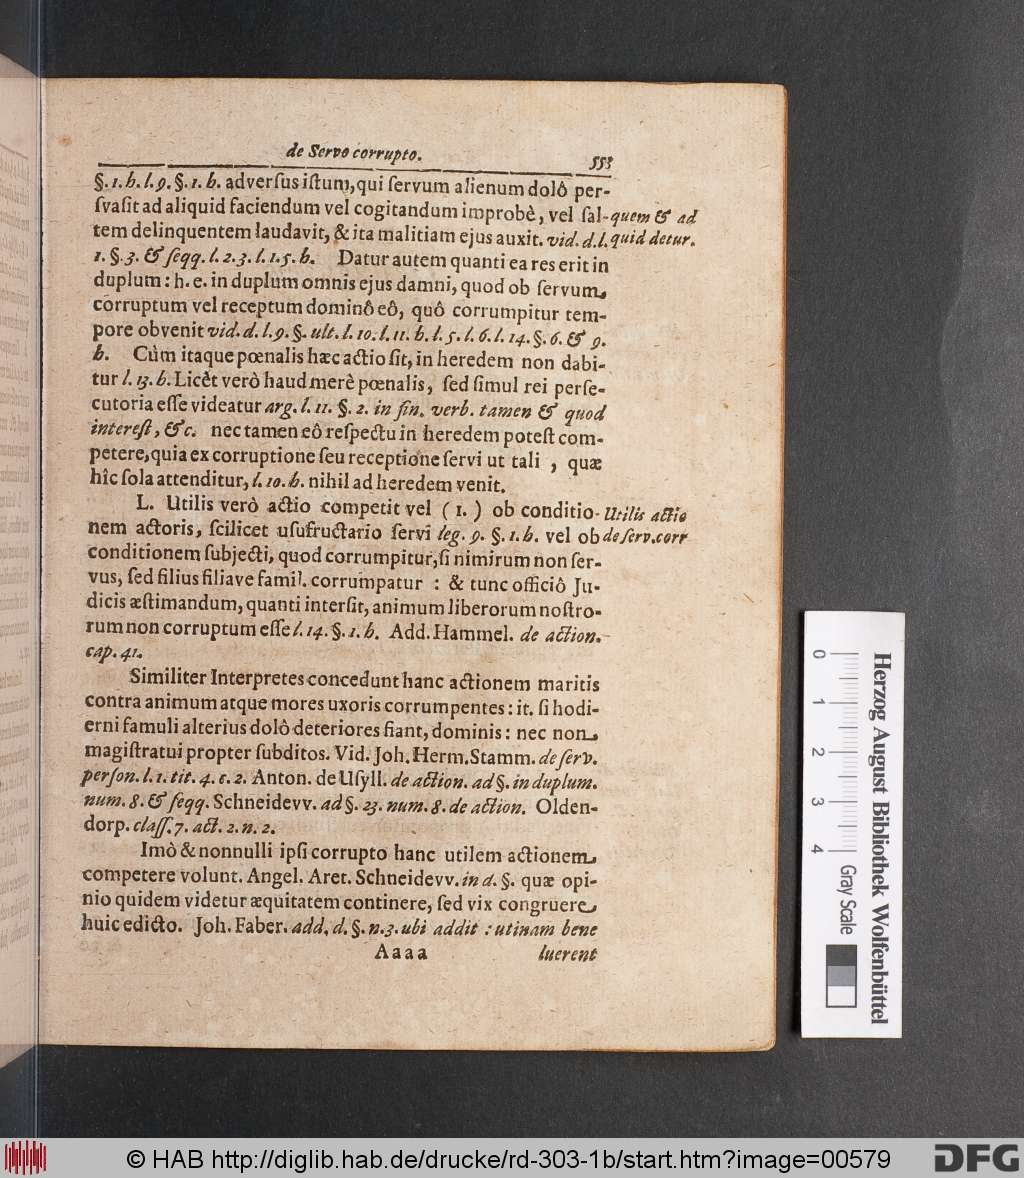 de Servo corrupto. 553
§. 1. h. l. 9. §. 1. h. adverſus iſtum, qui ſervum alienum dolô per-
ſvaſit ad aliquid faciendum vel cogitandum improbè, vel ſal-
quem & ad
tem delinquentem laudavit, & ita malitiam ejus auxit. vid. d. l.
quid detur.
1. §. 3. & ſeqq. l. 2. 3. l. 1. 5. h. Datur autem quanti ea res erit in
duplum: h. e. in duplum omnis ejus damni, quod ob ſervum
corruptum vel receptum dominô eô, quô corrumpitur tem-
pore obvenit vid. d. l. 9. §. ult. l. 10. l. 11. h. l. 5. l. 6. l. 14. §. 6. & 9.
h. Cùm itaque pœnalis hæc actio ſit, in heredem non dabi-
tur l. 13. h. Licèt verò haud merè pœnalis, ſed ſimul rei perſe-
cutoria eſſe videatur arg. l. 11. §. 2. in fin. verb. tamen & quod
intereſt, &c. nec tamen eô reſpectu in heredem poteſt com-
petere, quia ex corruptione ſeu receptione ſervi ut tali, quæ
hîc ſola attenditur, l. 10. h. nihil ad heredem venit.
L. Utilis verò actio competit vel (1.) ob conditio-
Utilis actio
nem actoris, ſcilicet uſufructario ſervi leg. 9. §. 1. h. vel ob
de ſerv. corr
conditionem ſubjecti, quod corrumpitur, ſi nimirum non ſer-
vus, ſed filius filiave famil. corrumpatur: & tunc officiô Ju-
dicis æſtimandum, quanti interſit, animum liberorum noſtro-
rum non corruptum eſſe l. 14. §. 1. h. Add. Hammel. de action.
cap. 41.
Similiter Interpretes concedunt hanc actionem maritis
contra animum atque mores uxoris corrumpentes: it. ſi hodi-
erni famuli alterius dolô deteriores fiant, dominis: nec non
magiſtratui propter ſubditos. Vid. Joh. Herm. Stamm. de ſerv.
perſon. l. 1. tit. 4. c. 2. Anton. de Uſyll. de action. ad §. in duplum.
num. 8. & ſeqq. Schneidevv. ad §. 23. num. 8. de action. Olden-
dorp. claſſ. 7. act. 2. n. 2.
Imò & nonnulli ipſi corrupto hanc utilem actionem
competere volunt. Angel. Aret. Schneidevv. in d. §. quæ opi-
nio quidem videtur æquitatem continere, ſed vix congruere
huic edicto. Joh. Faber. add. d. §. n. 3. ubi addit: utinam bene
Aaaa luerent
0 1 2 3 4
Herzog August Bibliothek Wolfenbüttel
Gray Scale
© HAB http://diglib.hab.de/drucke/rd-303-1b/start.htm?image=00579
DFG